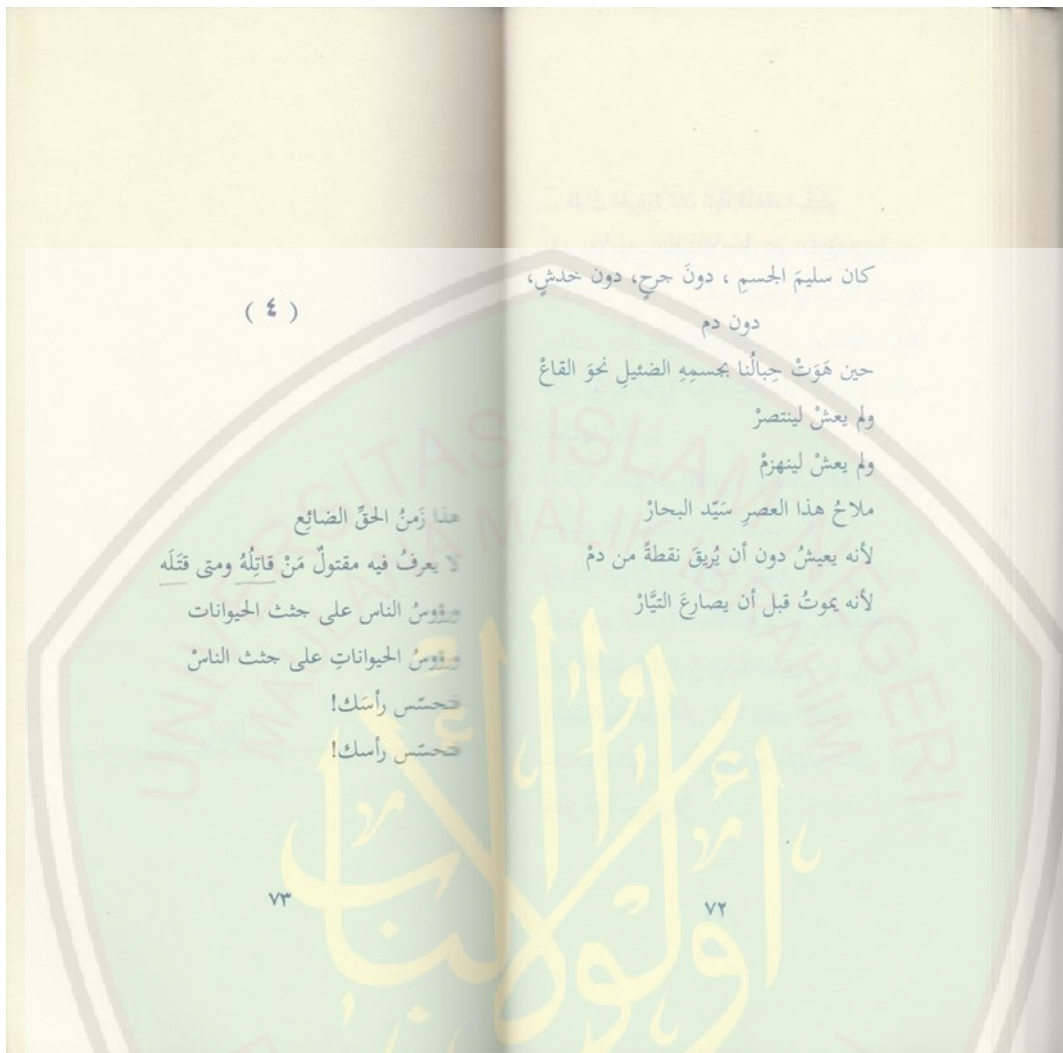 كان سليمَ الجسمِ ، دونَ جرحٍ، دون خدشٍ،
دون دم
حين هَوَتْ حِبالُنا بجسمِهِ الضئيلِ نحوَ القاعْ
ولم يعشْ لينتصرْ
ولم يعشْ لينهزمْ
ملاحُ هذا العصرِ سَيّد البحارْ
لأنه يعيشُ دون أن يُريقَ نقطةً من دمْ
لأنه يموتُ قبل أن يصارعَ التيَّارْ
٧٢
( ٤ )
هذا زَمنُ الحقِّ الضائِع
لا يعرفُ فيه مقتولٌ مَنْ قاتِلُهُ ومتى قتَلَه
ورؤوسُ الناس على جثث الحيوانات
ورؤوسُ الحيواناتِ على جثث الناسْ
فتحسّس رأسَك!
فتحسّس رأسك!
٧٣
UNIVERSITAS ISLAM NEGERI
MAULANA MALIK IBRAHIM
أولو الألباب